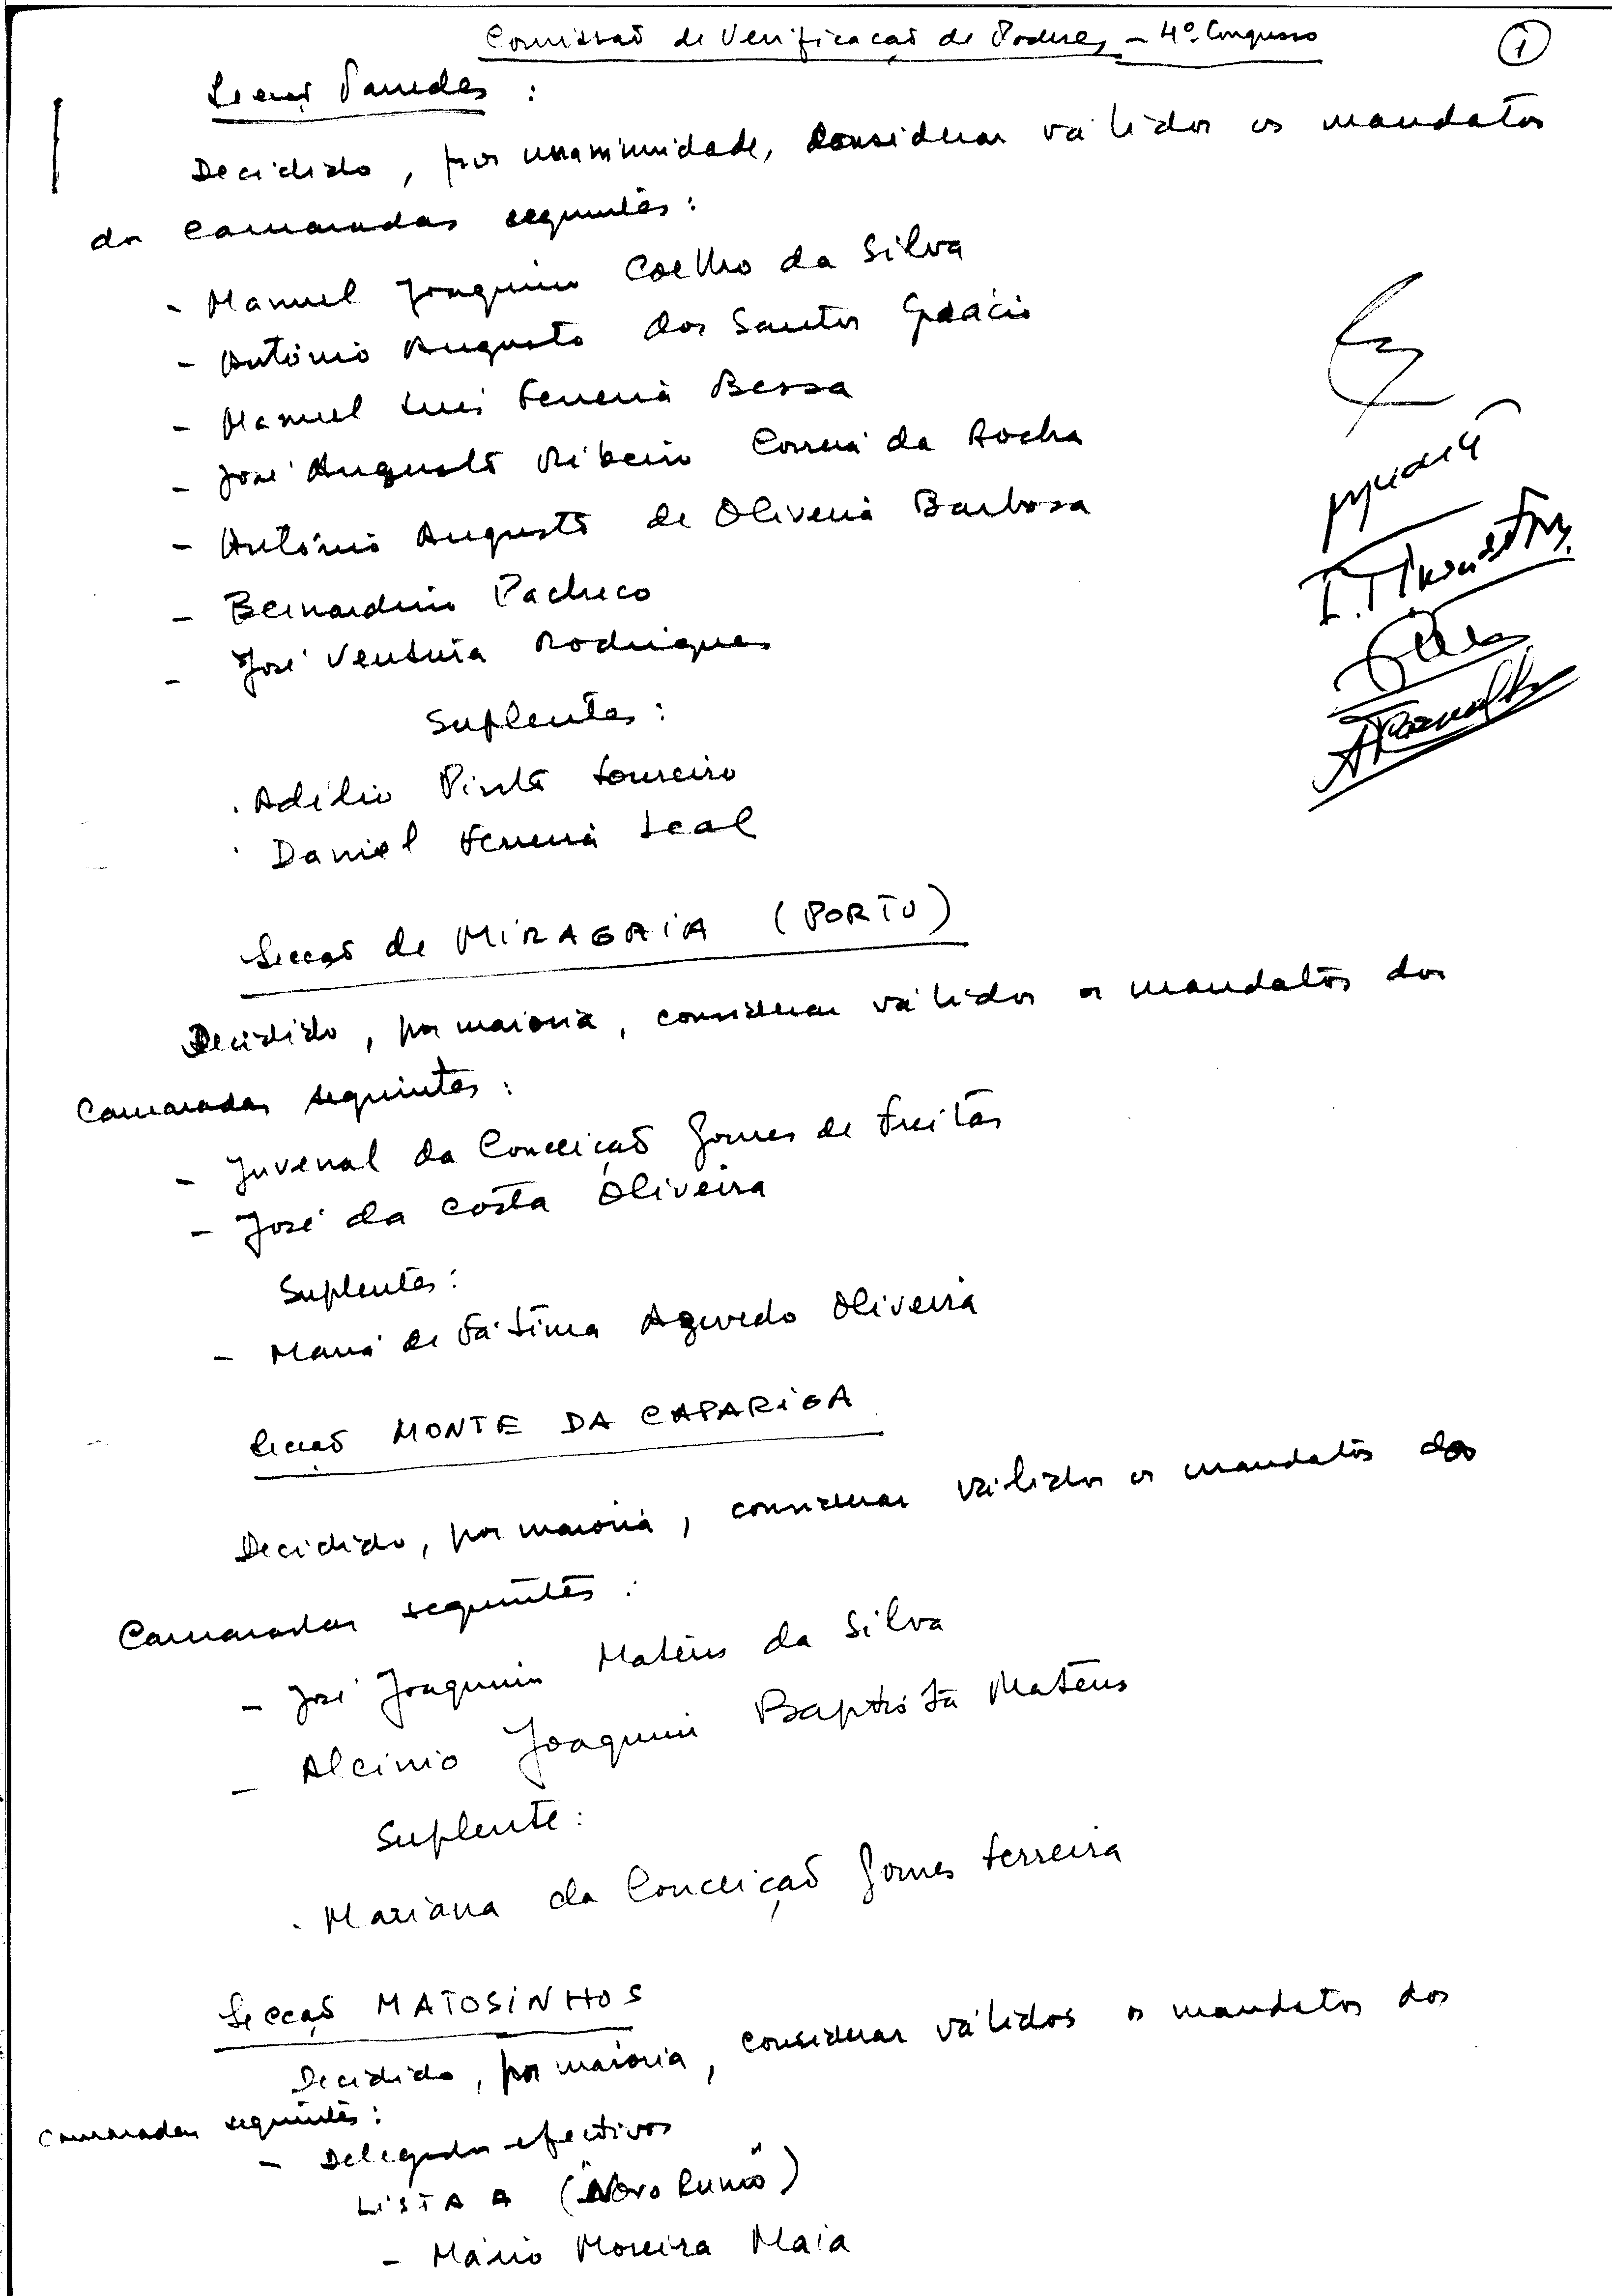 Comissão de Verificação de Poderes – 4º Congresso
1
Secção Paredes :
Decidido, por unanimidade, considerar válidos os mandatos
dos Camaradas seguintes :
- Manuel Joaquim Coelho da Silva
- António Augusto dos Santos Grácio
- Manuel Luis Ferreira Bessa
- José Augusto Ribeiro Correia da Rocha
- António Augusto de Oliveira Barbosa
- Bernardino Pacheco
- José Ventura Rodrigues
Suplentes :
. Adélio Pinto Loureiro
. Daniel Ferreira Leal
Secção de MIRAGAIA (PORTO)
Decidido, por maioria, considerar válidos os mandatos dos
Camaradas seguintes :
- Juvenal da Conceição Gomes de Freitas
- José da Costa Oliveira
Suplentes :
- Maria de Fátima Azevedo Oliveira
Secção MONTE DA CAPARIGA
Decidido, por maioria, considerar válidos os mandatos dos
Camaradas seguintes :
- José Joaquim Mateus da Silva
- Alcinio Joaquim Baptista Mateus
Suplente :
. Mariana da Conceição Gomes Ferreira
Secção MATOSINHOS
Decidido, por maioria, considerar válidos os mandatos dos
Camaradas seguintes :
- Delegados efectivos
LISTA A ("Novo Rumo")
- Mário Moreira Maia